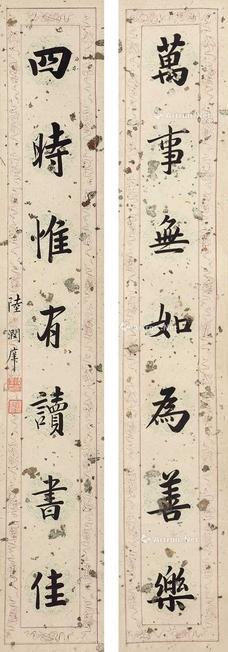 萬事無如為善樂
四時惟有讀書佳
陸潤庠